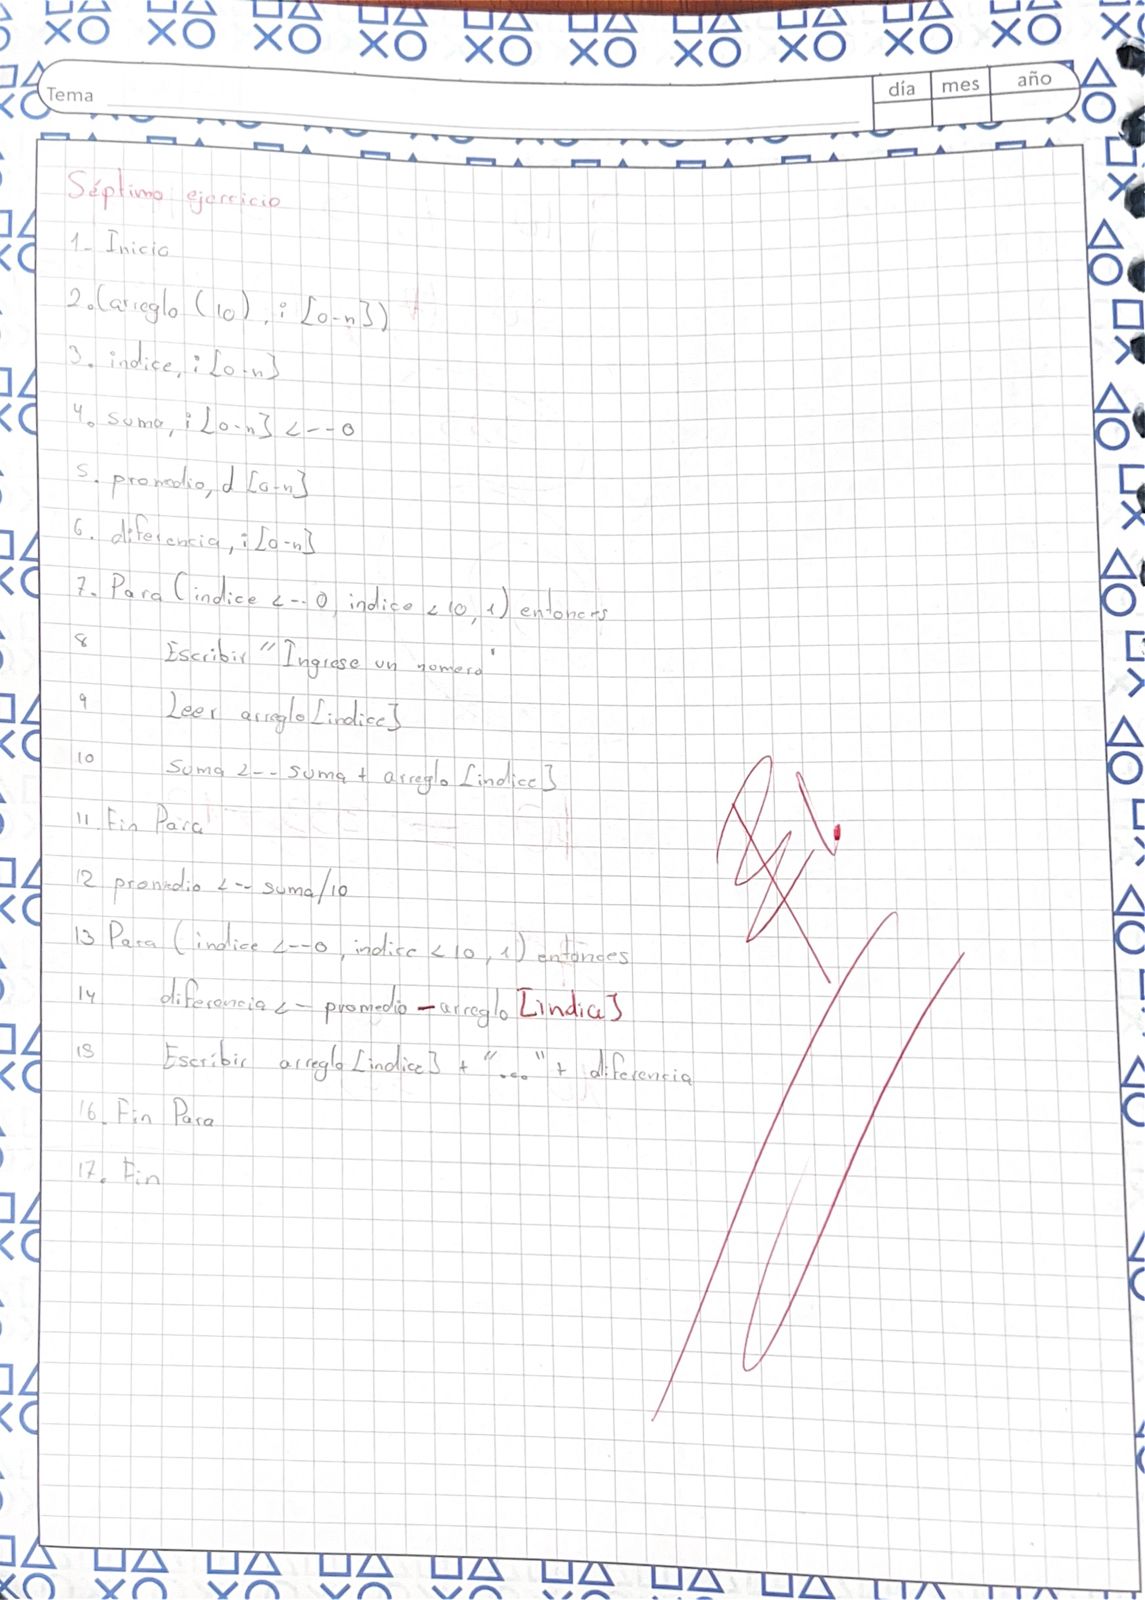 Tema
día mes año
Séptimo ejercicio
1- Inicio
2. (arreglo (10), i [0-n])
3. indice, i [0-n]
4. suma, i [0-n] <--0
5. promedio, d [0-n]
6. diferencia, i [0-n]
7. Para (indice <-- 0, indice < 10, 1) entonces
8 Escribir "Ingrese un numero"
9 Leer arreglo [indice]
10 suma <-- suma + arreglo [indice]
11. Fin Para
12 promedio <-- suma/10
13 Para (indice <--0, indice < 10, 1) entonces
14 diferencia <-- promedio - arreglo [indice]
15 Escribir arreglo [indice] + "..." + diferencia
16. Fin Para
17. Fin